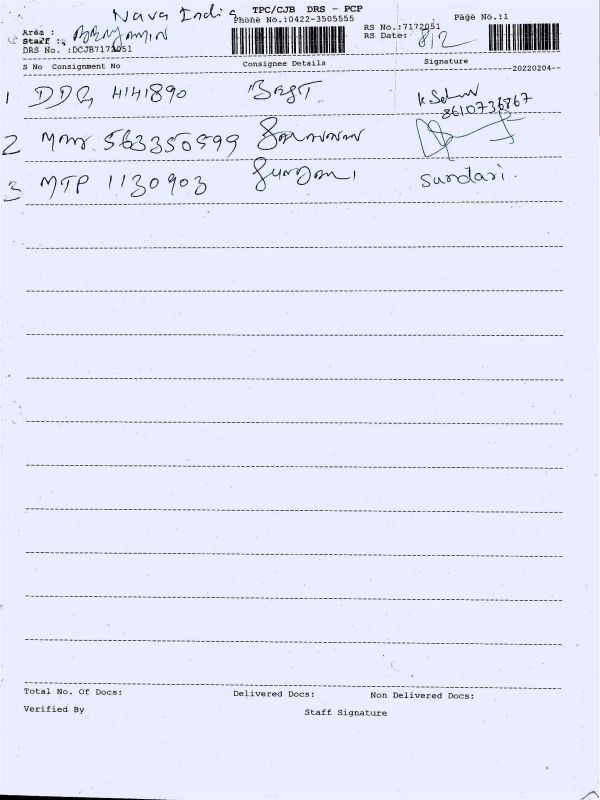 Nava India TPC/CJB DRS - PCP Page No.:1
Area : Phone No.:0422-3505555 RS No.:7172051
Staff : BENJAMIN RS Date: 8/2
DRS No. :DCJB7172051
S No Consignment No Consignee Details Signature --20220204--
1 4141890
8610736867
2 563350599
3 MTP 1130903 sundari.
Total No. Of Docs: Delivered Docs: Non Delivered Docs:
Verified By Staff Signature